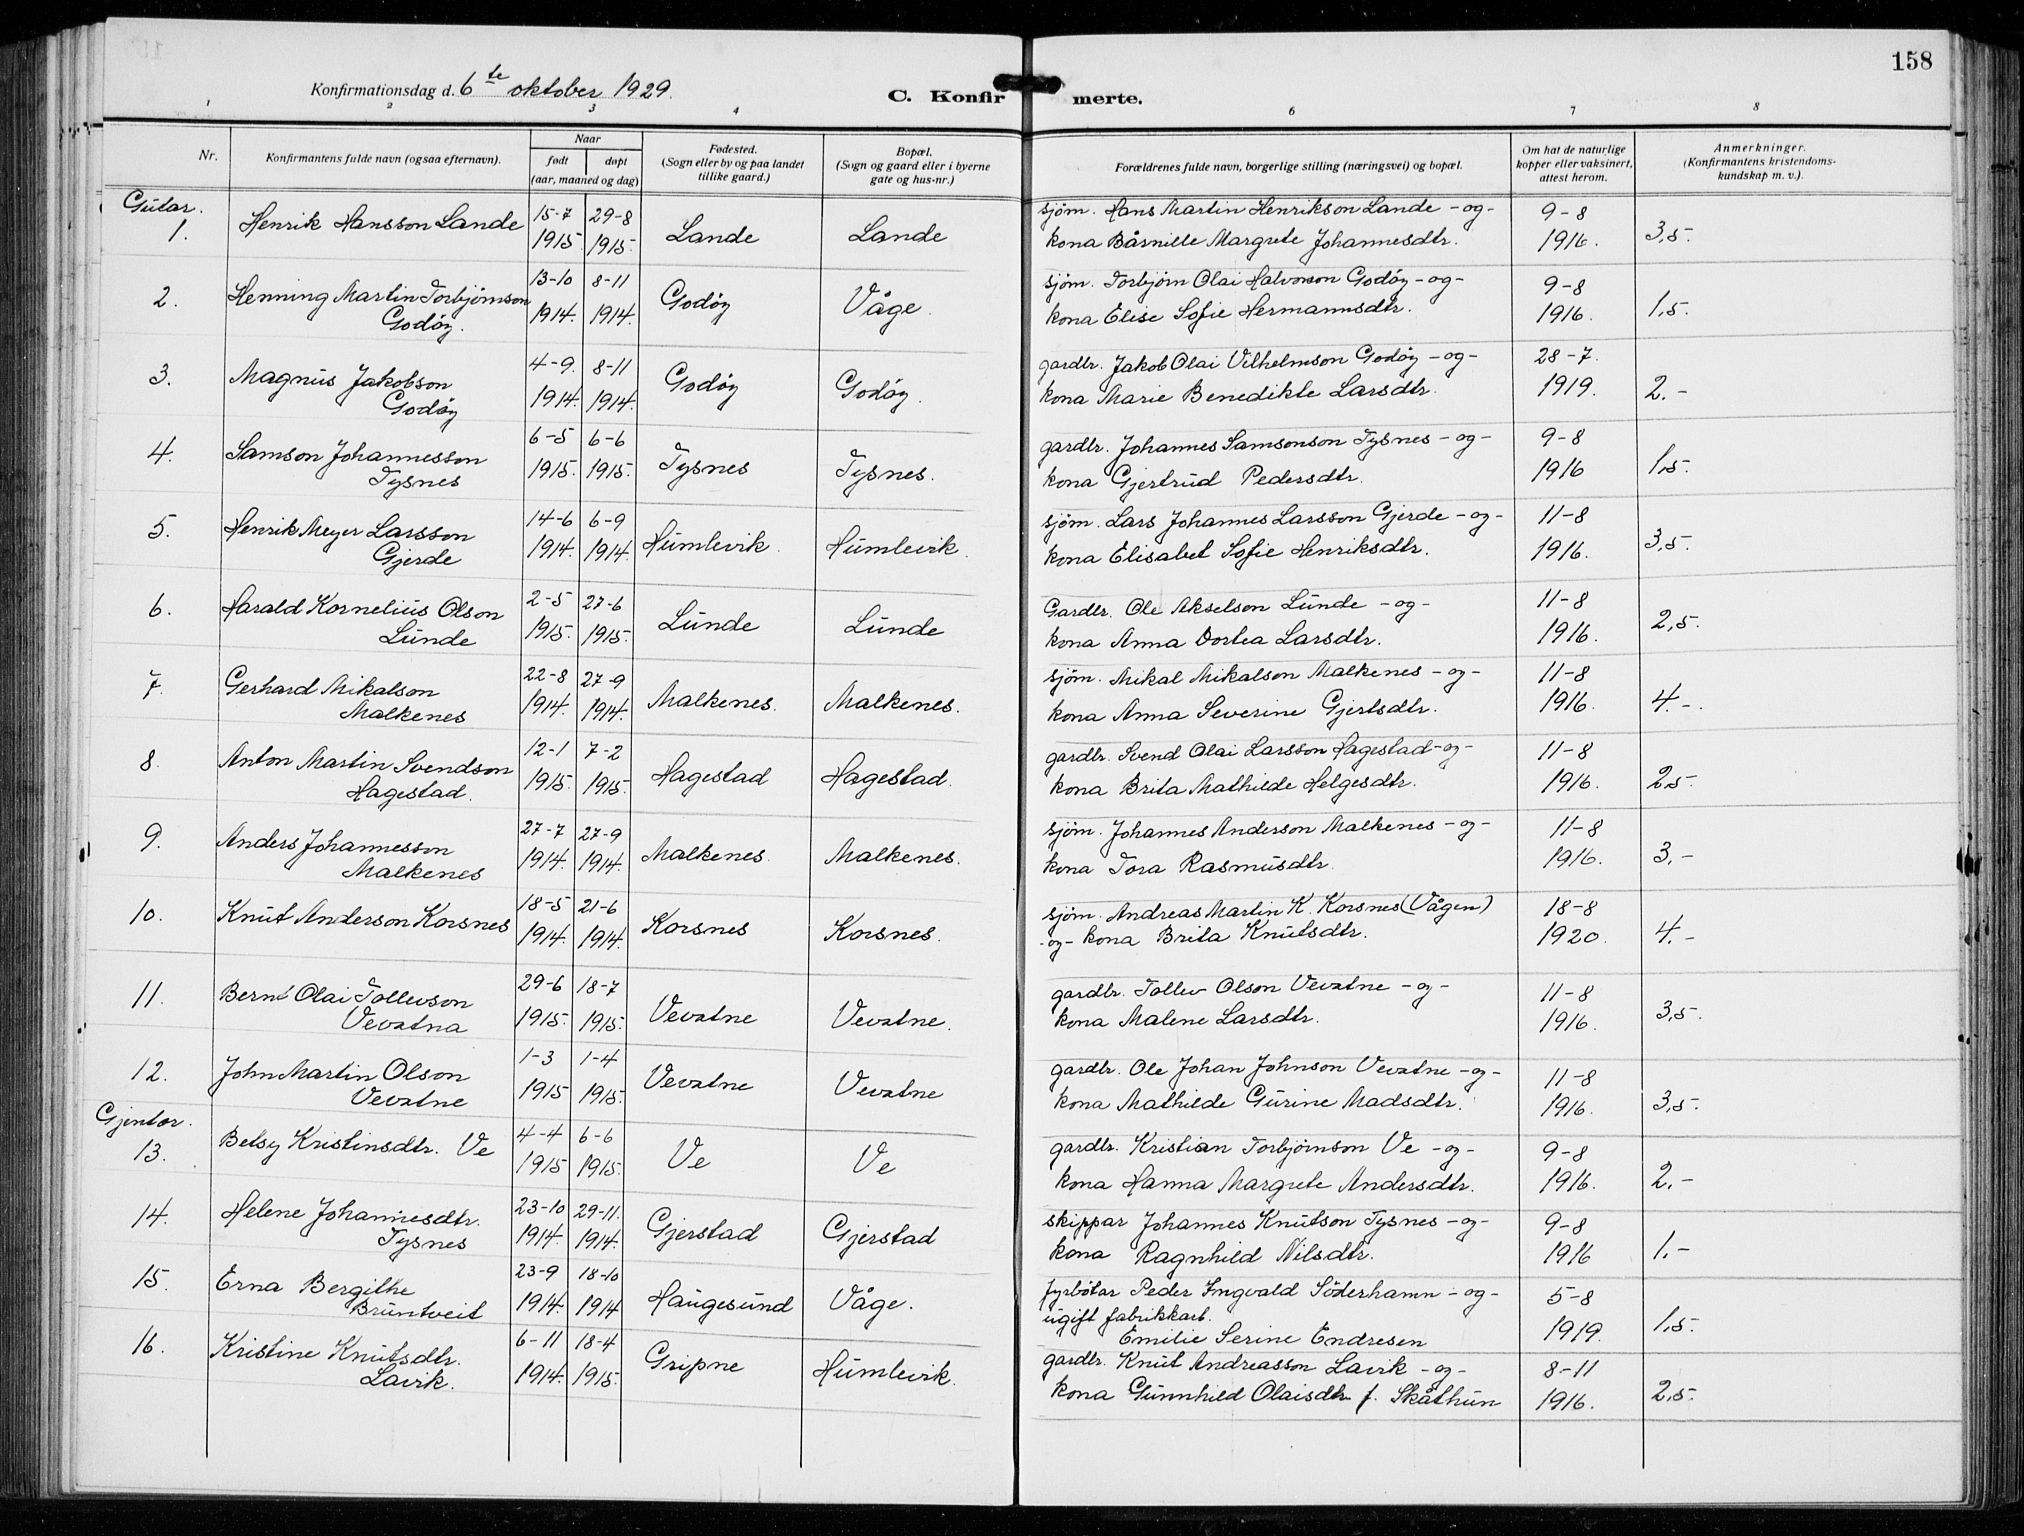 158
Konfirmationsdag d. 6te oktober 1929.
C. Konfirmerte.
1 2 3 4 6 7 8
Nr.
Konfirmantens fulde navn (ogsaa efternavn).
Naar
født døpt
(aar, maaned og dag)
Fødested.
(Sogn eller by og paa landet
tillike gaard.)
Bopæl.
(Sogn og gaard eller i byerne
gate og hus-nr.)
Forældrenes fulde navn, borgerlige stilling (næringsvei) og bopæl.
Om hat de naturlige
kopper eller vaksinert,
attest herom.
Anmerkninger.
(Konfirmantens kristendoms-
kundskap m. v.).
Gutar.
1. Henrik Hansson Lande 15-7 1915 29-8 1915 Lande Lande sjøm. Hans Martin Henrikson Lande - og - 9-8
kona Bårnille Margrete Johannesdtr. 1916. 3,5.
2. Henning Martin Torbjørnson 13-10 8-11 Godøy Våge. sjøm. Torbjørn Olai Halvorson Godøy - og - 9-8
Godøy. 1914. 1914. kona Elise Sofie Hermannsdtr. 1916. 1,5.
3. Magnus Jakobson 4-9. 8-11 Godøy Godøy. gardbr. Jakob Olai Vilhelmson Godøy - og - 28-7.
Godøy 1914. 1914. kona Marie Benedikte Larsdtr. 1919. 2.-
4. Samson Johannesson 6-5 6-6 Tysnes Tysnes. gardbr. Johannes Samsonson Tysnes - og - 9-8
Tysnes 1915. 1915. kona Gjertrud Pedersdtr. 1916 1,5.
5. Henrik Meyer Larsson 14-6 6-9 Humlevik. Humlevik. sjøm. Lars Johannes Larsson Gjerde - og - 11-8
Gjerde 1914. 1914. kona Elisabet Sofie Henriksdtr. 1916. 3,5.
6. Harald Kornelius Olson 2-5 27-6 Lunde Lunde Gardbr. Ole Akselson Lunde - og - 11-8
Lunde 1915. 1915. kona Anna Dortea Larsdtr. 1916. 2,5.
7. Gerhard Mikalson 22-8 27-9 Malkenes. Malkenes. sjøm. Mikal Mikalson Malkenes - og - 11-8
Malkenes 1914. 1914. kona Anna Severine Gjertsdtr. 1916. 4.-.
8. Anton Martin Svendson 12-1 7-2 Hagestad Hagestad. gardbr. Svend Olai Larsson Hagestad - og - 11-8
Hagestad. 1915. 1915. kona Brita Mathilde Helgesdtr. 1916. 2,5.
9. Anders Johannesson 27-7 27-9 Malkenes. Malkenes. sjøm. Johannes Anderson Malkenes - og - 11-8
Malkenes 1914. 1914. kona Tora Rasmusdtr. 1916. 3.-
10. Knut Anderson Korsnes 18-5 21-6 Korsnes Korsnes. sjøm. Andreas Martin K. Korsnes (Vågen) 18-8
1914. 1914. - og - kona Brita Knutsdtr. 1920. 4.-
11. Bernt Olai Tollevson 29-6 18-7 Vevatne Vevatne. gardbr. Tollev Olson Vevatne - og - 11-8
Vevatna 1915. 1915. kona Malene Larsdtr. 1916. 3,5.
12. John Martin Olson 1-3 1-4 Vevatne Vevatne gardbr. Ole Johan Johnson Vevatne - og - 11-8
Vevatne 1915 1915. kona Mathilde Gurine Madsdtr. 1916. 3,5.
Gjentor.
13. Betsy Kristinsdtr. Ve 4-4 6-6 Ve Ve gardbr. Kristian Torbjørnson Ve - og - 9-8
1915 1915. kona Hanna Margrete Andersdtr. 1916. 2.-
14. Helene Johannesdtr. 23-10 29-11. Gjerstad Gjerstad skippar Johannes Knutson Tysnes - og - 9-8
Tysnes 1914. 1914. kona Ragnhild Nilsdtr. 1916 1.-
15. Erna Bergithe 23-9 18-10 Haugesund Våge. fyrbøtar Peder Ingvald Söderhamn - og - 5-8
Bruntveit 1914. 1914 ugift fabrikkarb. 1919. 1,5.
Emilie Serine Endresen
16. Kristine Knutsdtr. 6-11 18-4 Gripne Humlevik. gardbr. Knut Andreasson Lavik - og - 8-11
Lavik. 1914. 1915. kona Gunnhild Olaisdtr. f. Skåthun 1916. 2,5.